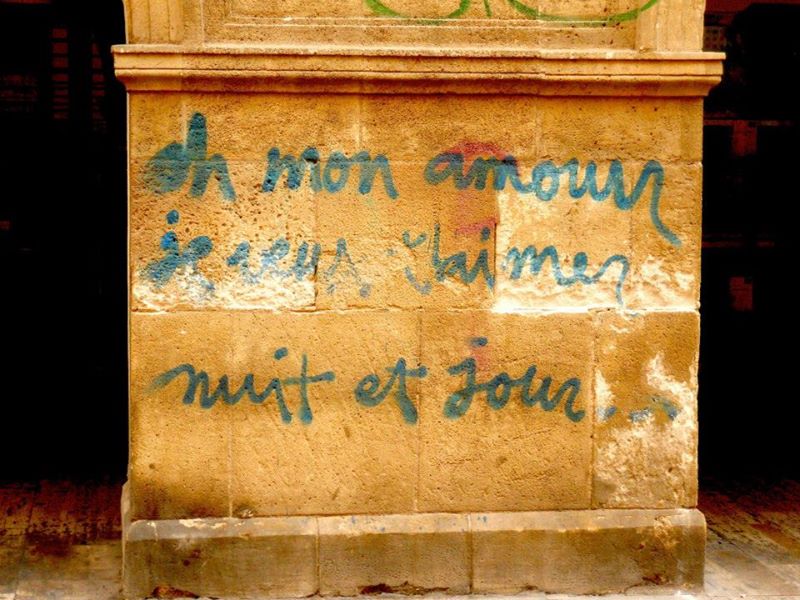 oh mon amour
je veux t'aimer
nuit et jour...